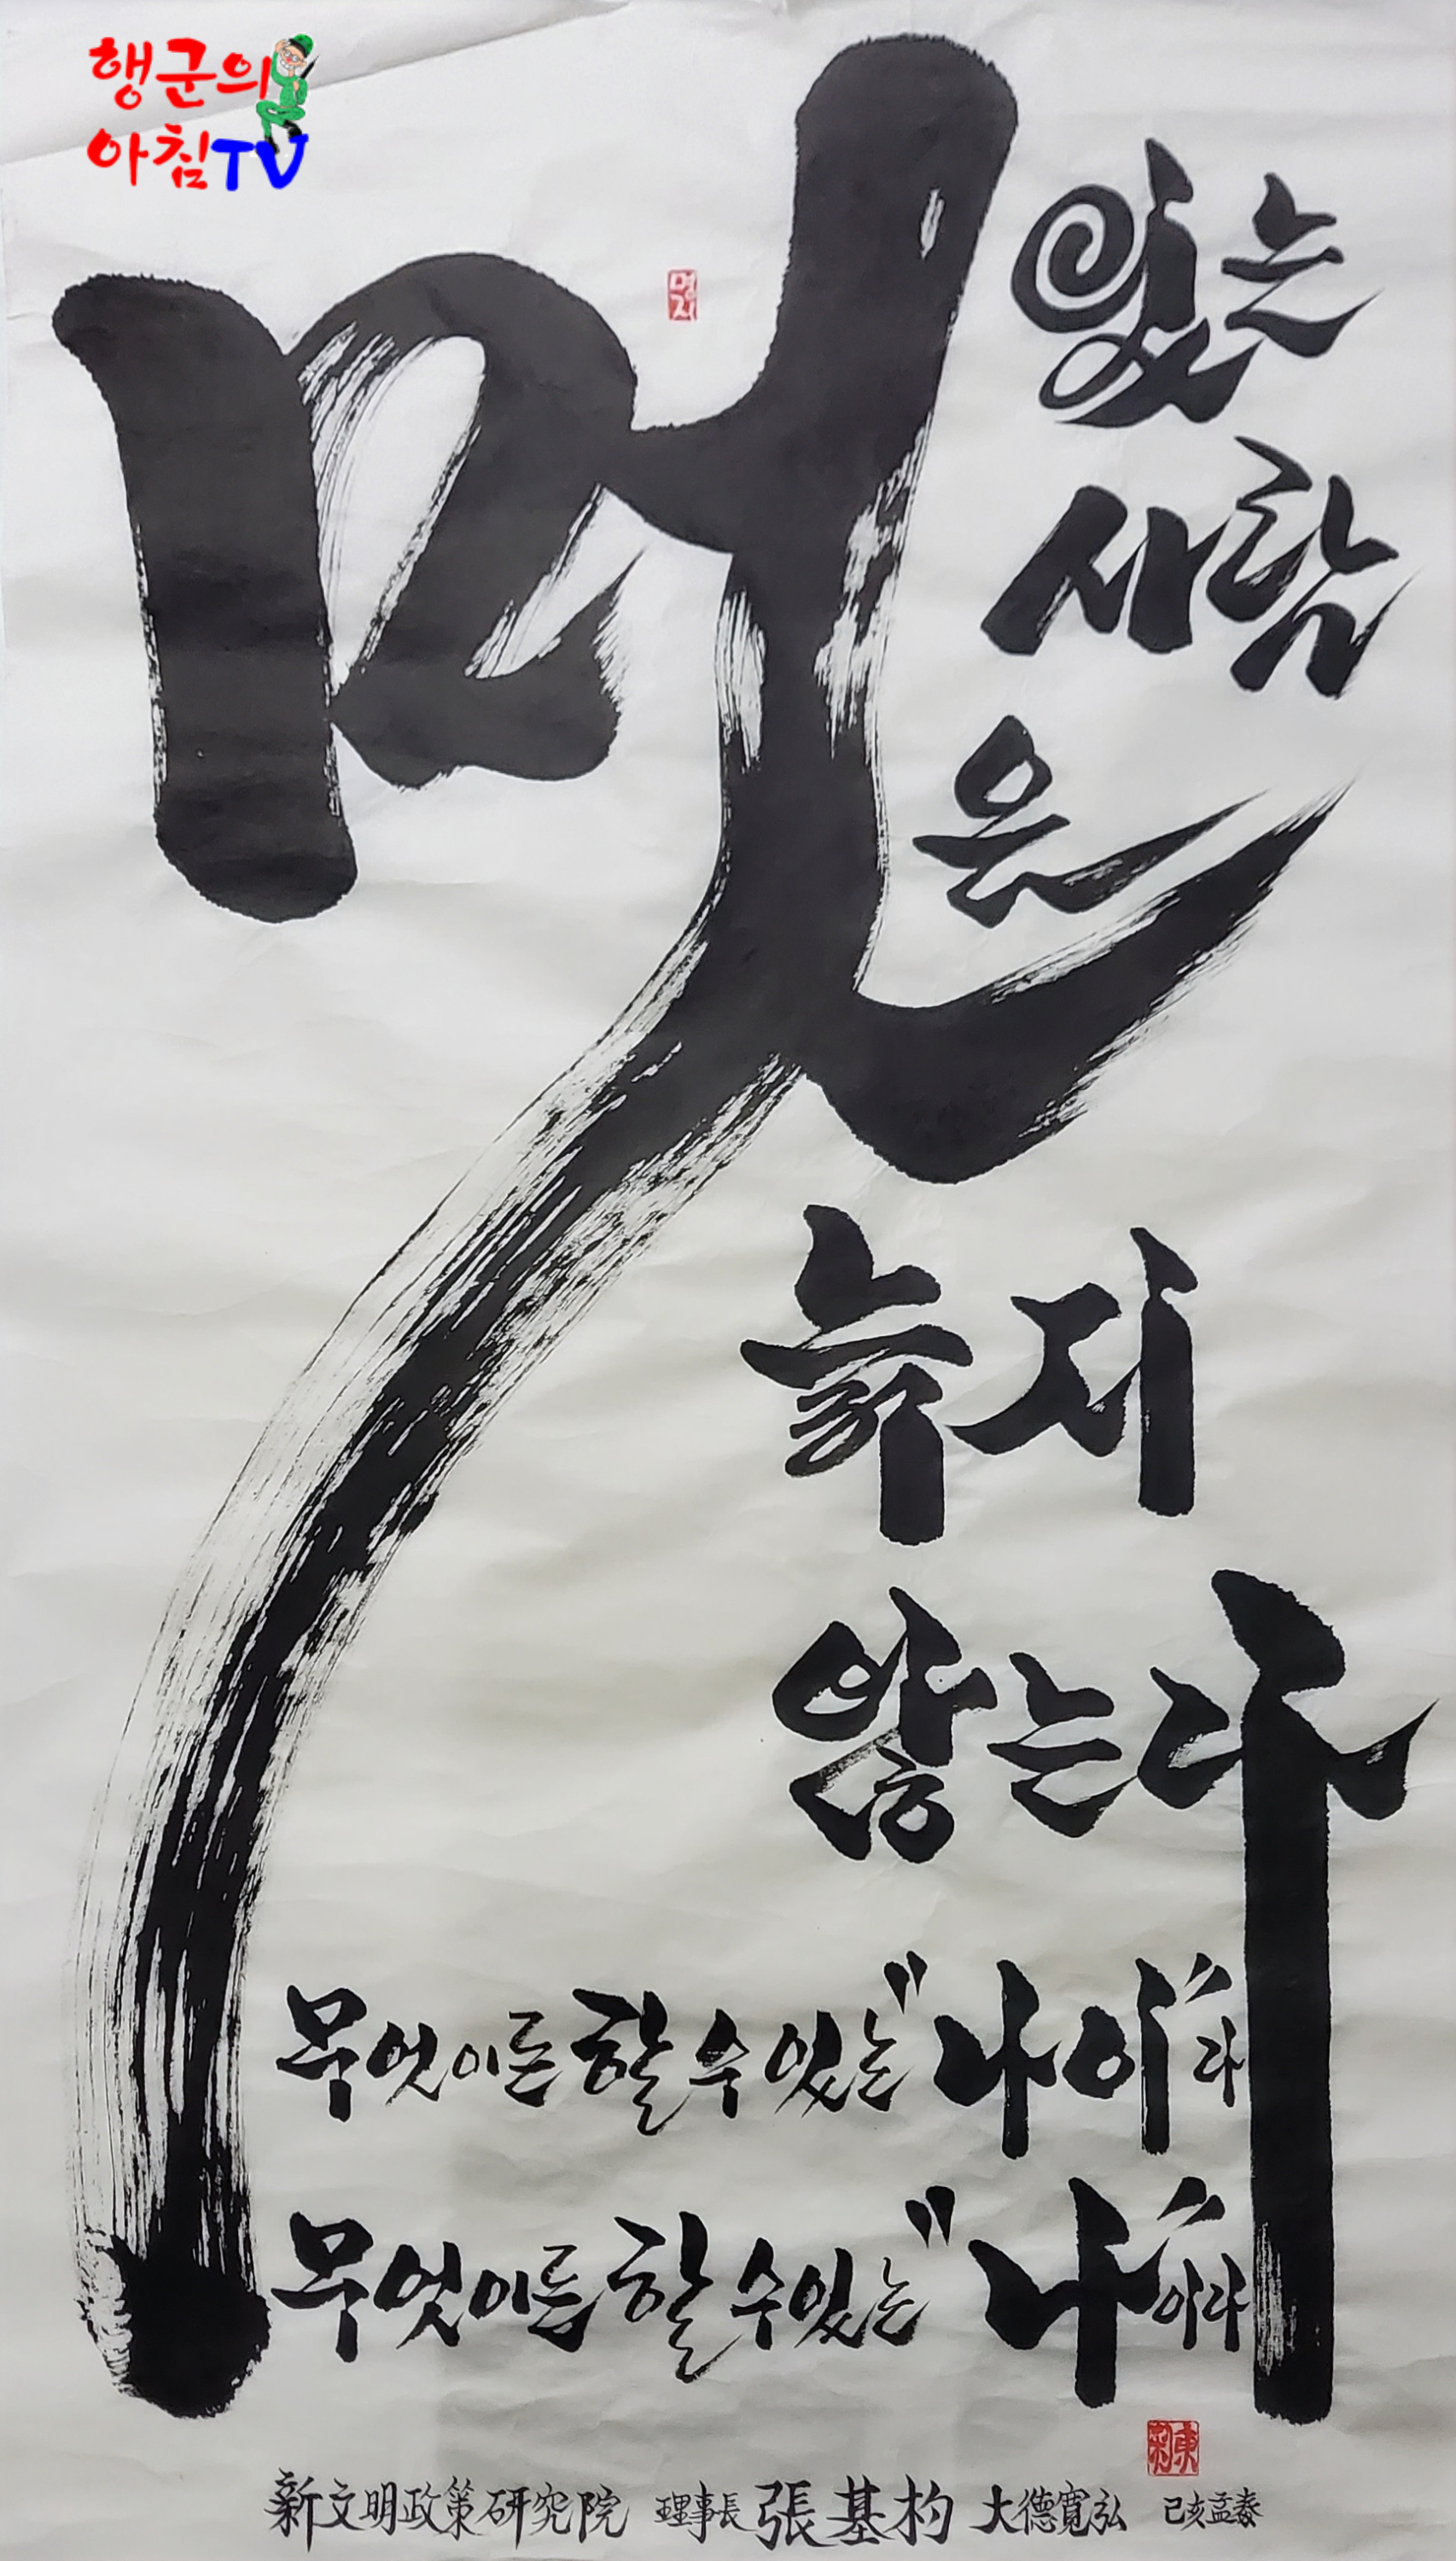 행군의
아침TV
멋있는
사람
은
늙지
않는다
무엇이든 할 수 있는 "나이"라
무엇이든 할 수 있는 "나"이라
新文明政策研究院 理事長 張基杓 大德寬弘 己亥孟春